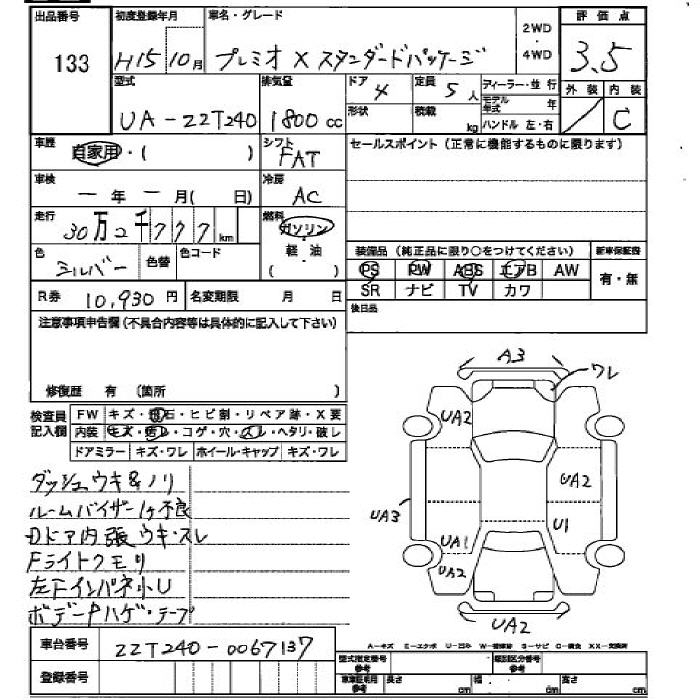 出品番号 133
初度登録年月 H15 10月
車名・グレード プレミオ X スタンダードパッケージ
2WD ・ 4WD
評価点 3.5
型式 UA-ZZT240
排気量 1800 cc
ドア 4
定員 5人
ディーラー・並行
外装 内装 C
形状
積載 kg
モデル年式 年
ハンドル 左・右
車歴 自家用・( )
シフト FAT
セールスポイント (正常に機能するものに限ります)
車検 ー年ー月( 日)
冷房 AC
走行 30万2千777 km
燃料 ガソリン 軽油 ( )
色 シルバー 色替 色コード
装備品 (純正品に限り○をつけてください) 新車保証書
PS PW ABS エアB AW 有・無
SR ナビ TV カワ
R券 10,930円 名変期限 月 日
後日品
注意事項申告欄 (不具合内容等は具体的に記入して下さい)
修復歴 有 (箇所 )
検査員記入欄
FW キズ・飛石・ヒビ割・リペア跡・X要
内装 キズ・汚レ・コゲ・穴・スレ・ヘタリ・破レ
ドアミラー キズ・ワレ ホイール・キャップ キズ・ワレ
ダッシュウキ&ノリ
ルームバイザー1ヶ不良
Dドア内張ウキ・スレ
Fライトクモリ
左FインパネホU
ボデーPハゲ・テープ
A3 ワレ
UA2
UA2
UA3 U1
UA1
UA2
UA2
車台番号 ZZT240-0067137
A-キズ E-エクボ U-凹み W-補修跡 S-サビ C-腐食 XX-交換済
登録番号
型式指定番号 参考
類別区分番号 参考
車庫証明用 参考 長さ cm 幅 cm 高さ cm